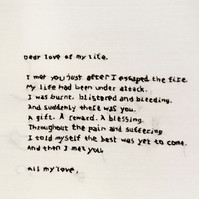 Dear love of my life.
I met you just after I escaped the fire.
My life had been under attack.
I was burnt, blistered and bleeding.
And suddenly there was you.
A gift. A reward. A blessing.
Throughout the pain and suffering
I told myself the best was yet to come.
And then I met you.
All my love,